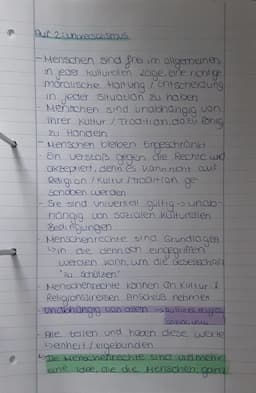 Auf 2: Universalismus
- Menschen sind frei im allgemeinen
in jeder kulturellen Lage, eine richtige
moralische Haltung / Entscheidung
in jeder Situation zu haben
- Menschen sind unabhängig von
ihrer Kultur / Tradition, dazu fähig
zu Handeln
- Menschen bleiben Eingeschränkt
- Ein Verstoß gegen die Rechte wird
akzeptiert, denn es kann nicht auf
Religion / Kultur / Tradition ge-
schoben werden
- Sie sind universal gültig → unab-
hängig von sozialen kulturellen
Bedingungen
- Menschenrechte sind Grundlagen
in die dennoch eingegriffen
werden kann, um die Gesellschaft
zu schützen
- Menschenrechte können an Kultur &
Religionskreisen Anschluss nehmen
unabhängig von allen
- Alle teilen und haben diese Werte
/ eigebunden
Die Menschenrechte sind vielmehr
eine Idee, die die Menschen ganz